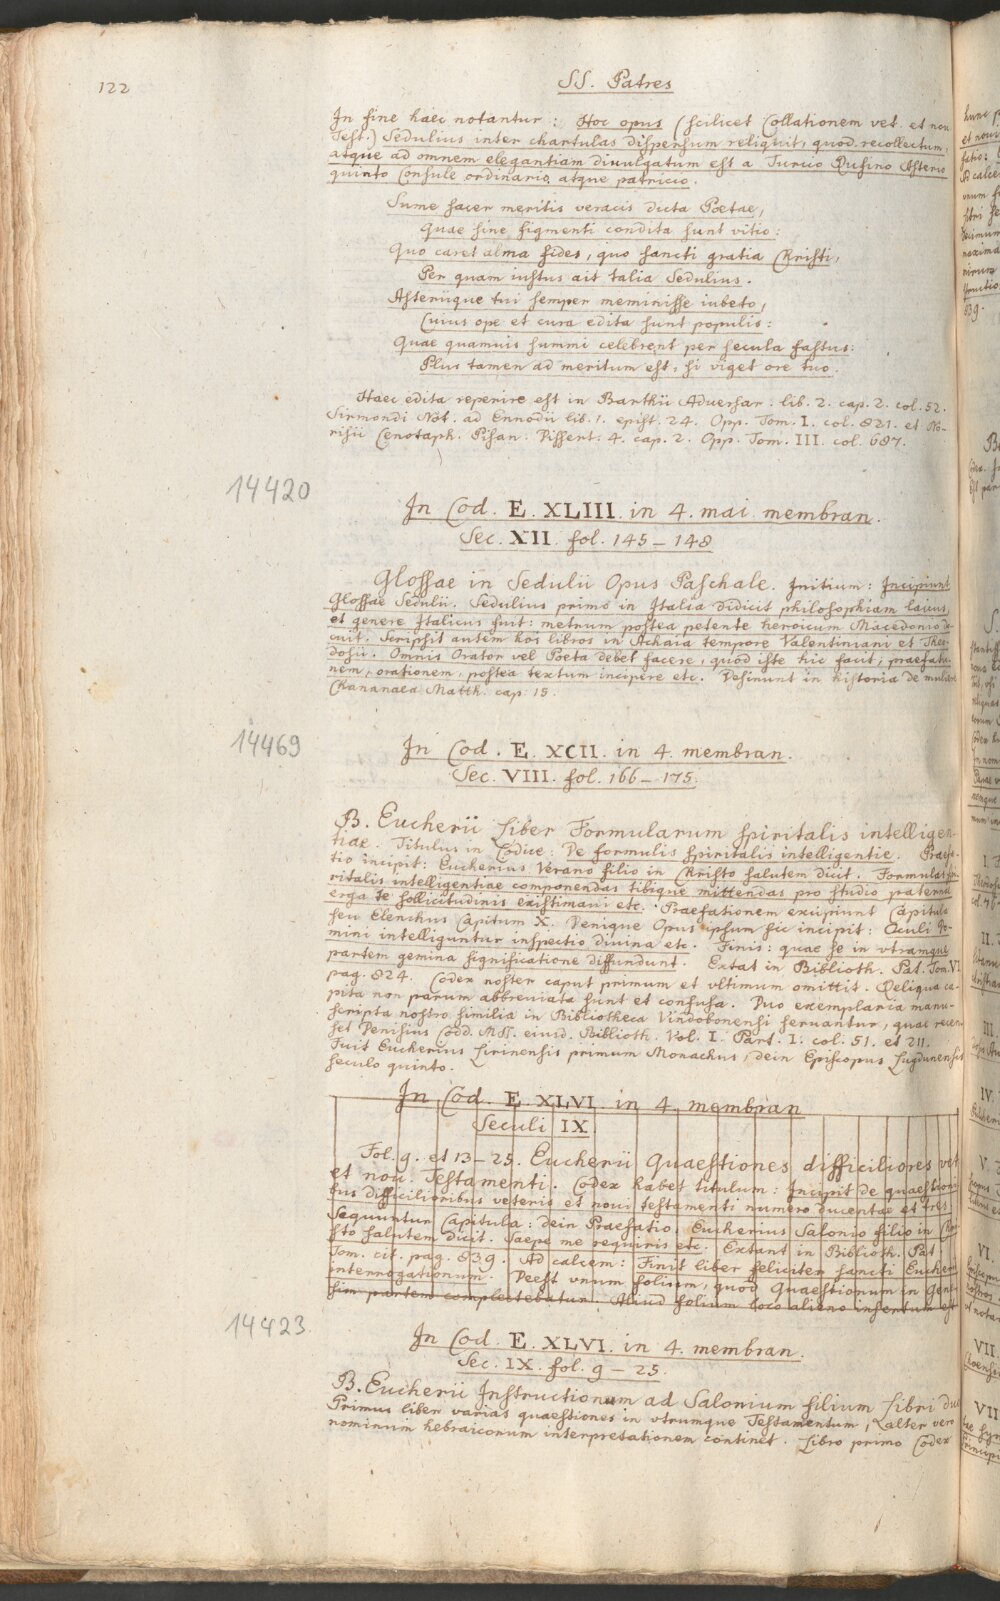 122
SS. Patres
In fine haec notantur: Hoc opus (scilicet Collationem vet. et nov.
Test.) Sedulius inter chartulas dispersum reliquit, quod recollectum,
atque ad omnem elegantiam divulgatum est a Turcio Rufino Asterio
quinto Consule ordinario, atque patricio.
Sume sacer meritis veracis dicta Poetae,
Quae sine figmenti condita sunt vitio:
Quo caret alma fides, quo sancti gratia Christi,
Per quam iustus ait talia Sedulius.
Asteriique tui semper meminisse iubeto,
Cuius ope et cura edita sunt populis:
Quae quamuis summi celebrent per secula fastus:
Plus tamen ad meritum est, si viget ore tuo.
Haec edita reperire est in Barthii Aduersar. lib. 2. cap. 2. col. 52.
Sirmondi Not. ad Ennodii lib. 1. epist. 24. Opp. Tom. I. col. 821. et No-
risii Cenotaph. Pisan. Dissert. 4. cap. 2. Opp. Tom. III. col. 687.
14420
In Cod. E. XLIII. in 4. mai. membran.
Sec. XII. fol. 145–148
Glossae in Sedulii Opus Paschale. Initium: Incipiunt
Glossae Sedulii. Sedulius primo in Italia didicit philosophiam laicus,
et genere Italicus fuit: metrum postea petente heroicum Macedonio do-
cuit. Scripsit autem hos libros in Achaia tempore Valentiniani et Theo-
dosii. Omnis Orator vel Poeta debet facere, quod iste hic facit, praefatio-
nem, orationem, postea textum incipere etc. Desinunt in historia de muliere
Chananaea Matth. cap. 15.
14469
In Cod. E. XCII. in 4. membran.
Sec. VIII. fol. 166–175.
B. Eucherii Liber Formularum spiritalis intelligen-
tiae. Titulus in Codice: De formulis spiritalis intelligentie. Praefa-
tio incipit: Eucherius Verano filio in Christo salutem dicit. Formulas spi-
ritalis intelligentiae componendas tibique mittendas pro studio paternae
erga te sollicitudinis existimani etc. Praefationem excipiunt Capitula
seu Elenchus Capitum X. Denique Opus ipsum sic incipit: Oculi Do-
mini intelliguntur inspectio divina etc. Finis: quae se in vtramque
partem gemina significatione diffundunt. Extat in Biblioth. Pat. Tom. VI
pag. 824. Codex noster caput primum et vltimum omittit. Reliqua ca-
pita non parum abbreviata sunt et confusa. Duo exemplaria manu-
scripta nostro similia in Bibliotheca Vindobonensi seruantur, quae recen-
set Denisius Codd. MSS. eiusd. Biblioth. Vol. I. Part. I. col. 51. et 211.
Fuit Eucherius Lirinensis primum Monachus, dein Episcopus Lugdunensis
seculo quinto.
In Cod. E. XLVI. in 4. membran
Seculi IX
Fol. 9. et 13–25. Eucherii Quaestiones difficiliores vet
et nou. Testamenti. Codex habet titulum: Incipit de quaestioni
bus difficilioribus veteris et noui testamenti numero ducentae et tres
Sequuntur Capitula: dein Praefatio. Eucherius Salonio filio in Chri
sto salutem dicit. Saepe me requiris etc. Extant in Biblioth. Pat.
Tom. cit. pag. 839. Ad calcem: Finit liber feliciter sancti Eucherii
interrogationum. Deest vnum folium, quod Quaestionum in Gene
sim partem complectebatur. Aliud folium loco alieno insertum est
14423
In Cod. E. XLVI. in 4. membran.
Sec. IX. fol. 9–25.
B. Eucherii Instructionum ad Salonium filium Libri duo
Primus liber varias quaestiones in vtrumque Testamentum, alter vero
nominum hebraicorum interpretationem continet. Libro primo Codex